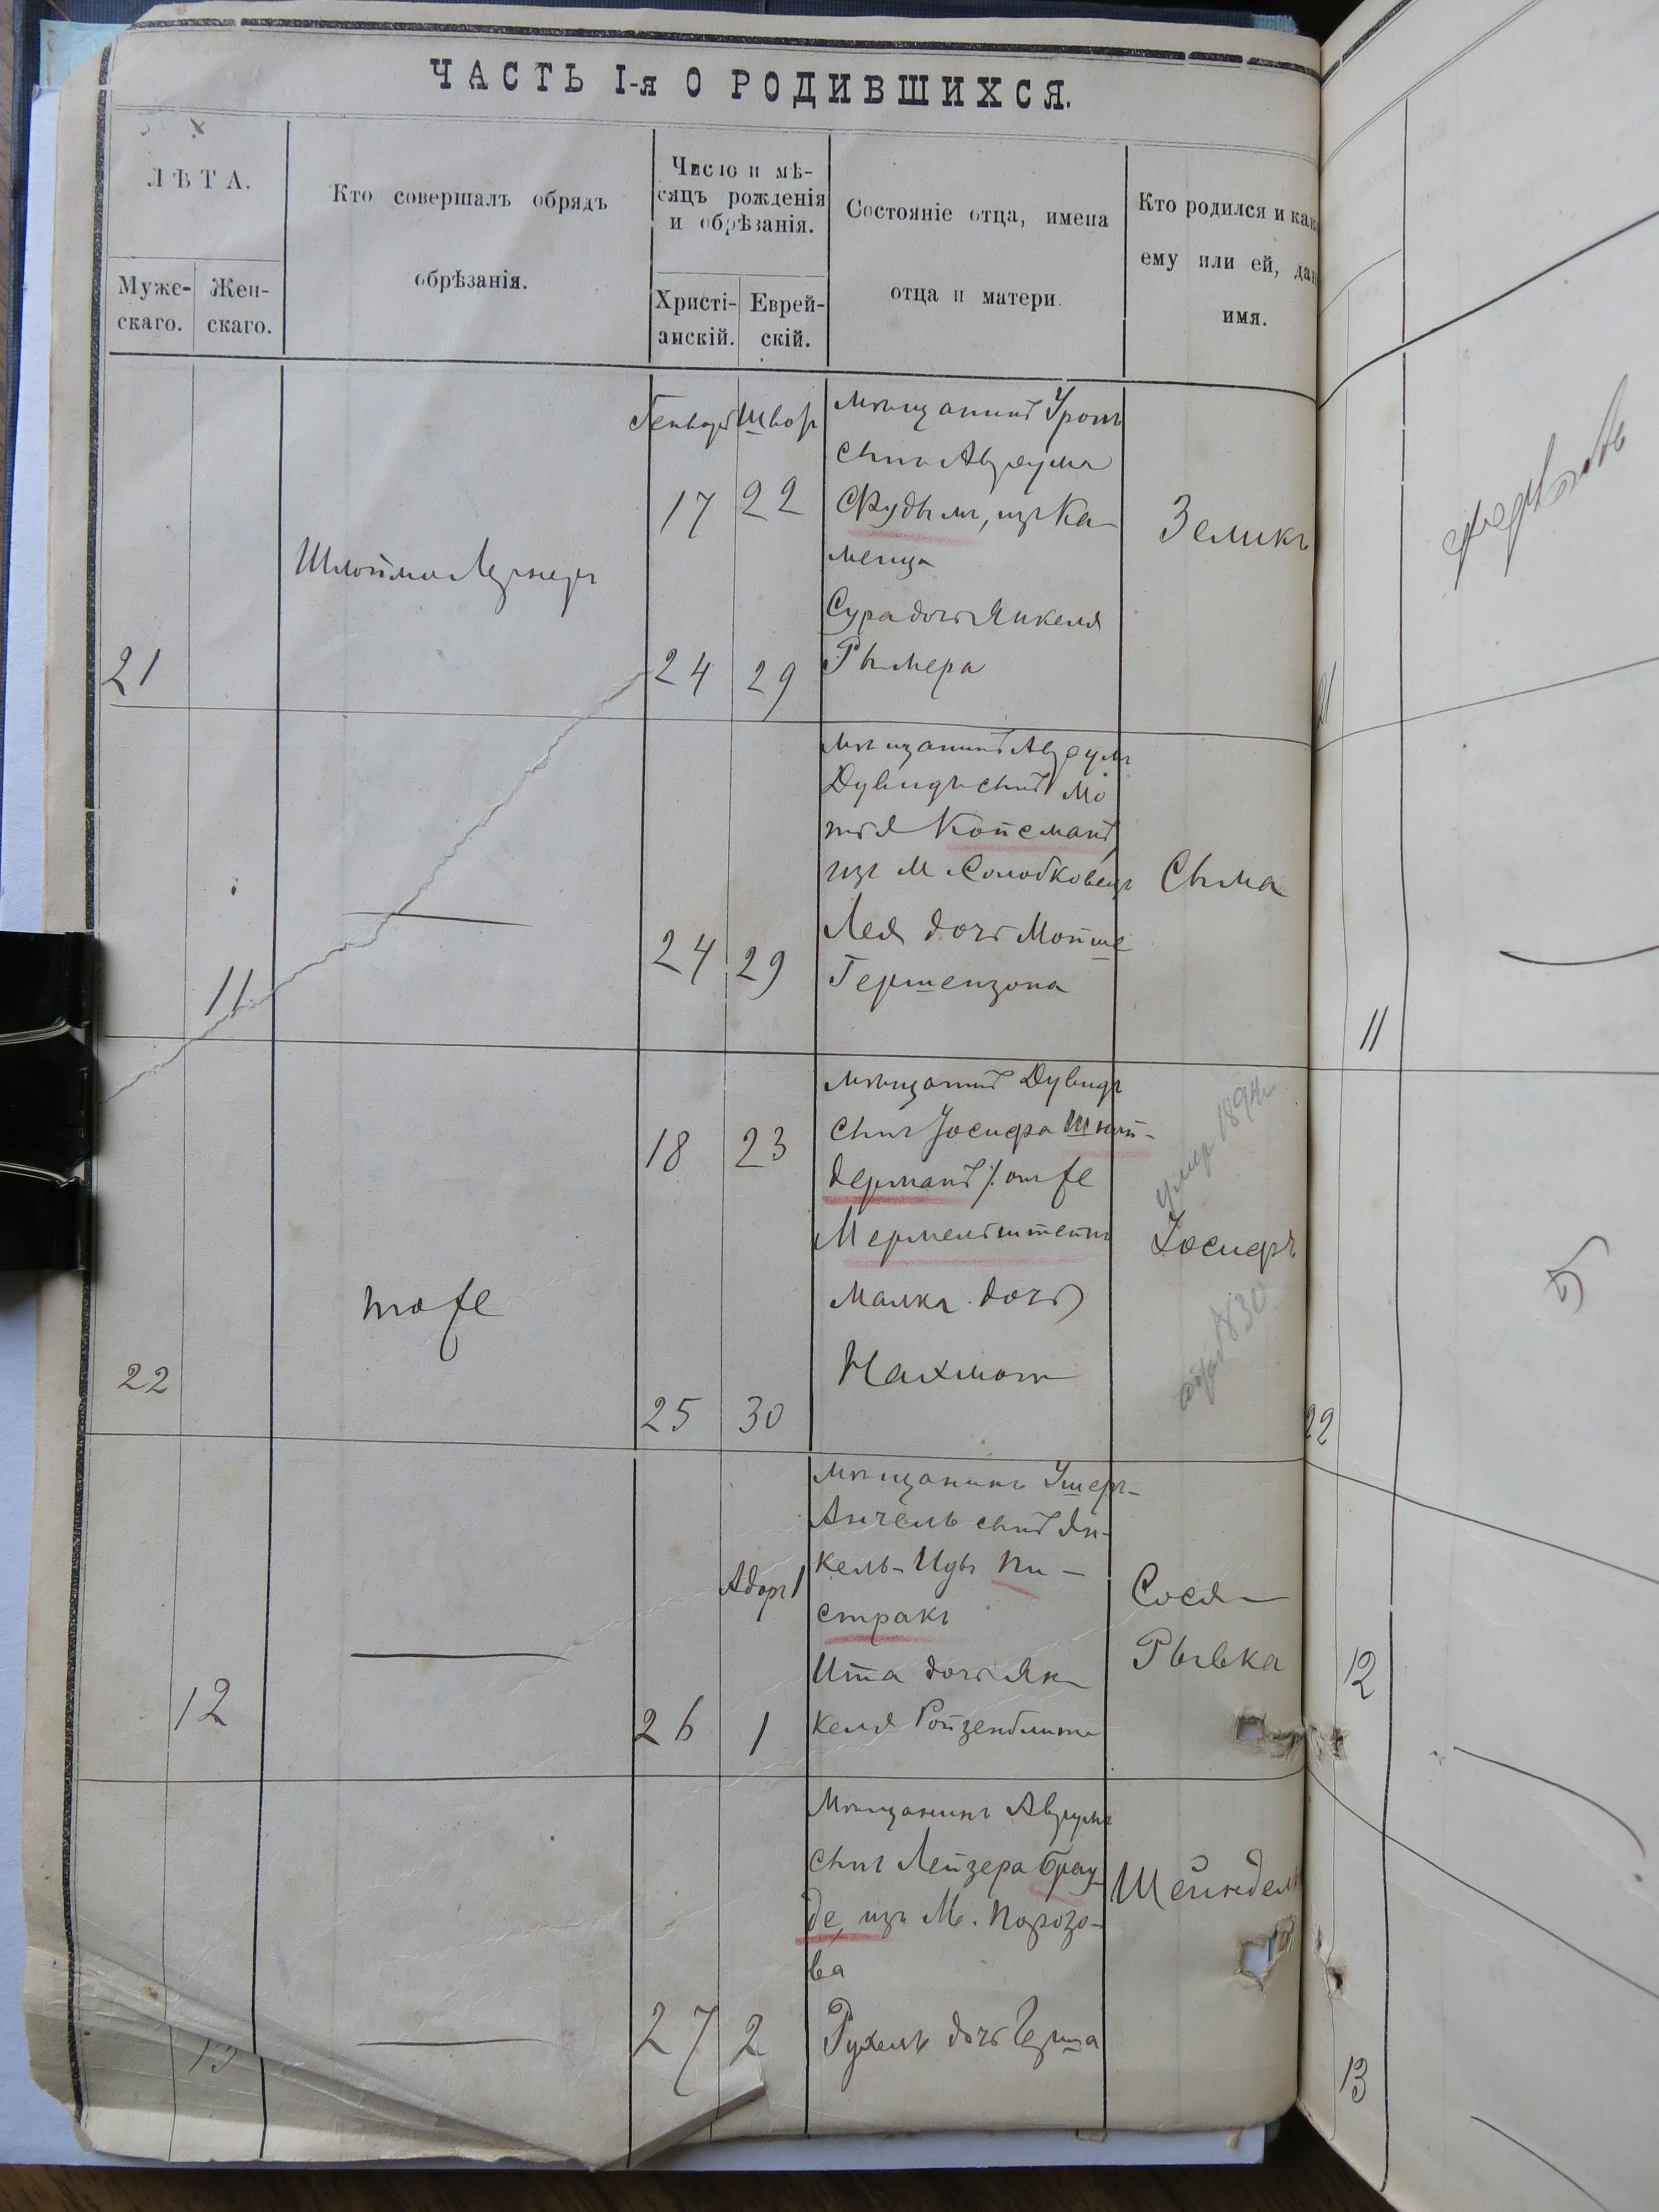 ЧАСТЬ I-я О РОДИВШИХСЯ.
ЛѢТА.
Муже-
скаго.
Жен-
скаго.
Кто совершалъ обрядъ
обрѣзанія.
Число и мѣ-
сяцъ рожденія
и обрѣзанія.
Христі-
анскій.
Еврей-
скій.
Состояніе отца, имена
отца и матери.
Кто родился и как
ему или ей, дан
имя.
21
Шлойма
Генварь
17
24
Шват
22
29
мѣщанинъ
сынъ Аврума
изъ Ка-
менца
Сура дочь Янкеля
Рымера
Зеликъ
21
11
24
29
мѣщанинъ Аврумъ
Дувидъ сынъ Мо
Койсманъ,
изъ м Солобковецъ
Лея дочь Мойше
Гершензона
Сыма
11
22
тоже
18
25
23
30
мѣщанинъ Дувидъ
сынъ Іосифа Шнай-
дерманъ онже
Мермельштейнъ
Малка дочь
Нахмана
умер 1894
Іосифъ
22
12
26
Адаръ 1
1
Мѣщанинъ Ушеръ-
Анчель сынъ Ян-
кель-Иды Пи-
стракъ
Ита дочь Ян-
келя Ройзенблита
Сося-
Рывка
12
13
27
2
Мѣщанинъ Аврумъ
сынъ Лейзера Брау-
де, изъ М. Порозо-
ва
Рухель дочь Герша
Шейндель
13